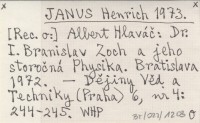 x x
JANUS Henrich 1973.
[Rec. o:] Albert Hlaváč: Dr.
I. Branislav Zoch a jeho
storočná Physika. Bratislava
1972. — Dějiny Věd a
Techniky (Praha) 6, nr. 4:
244-245. WHP